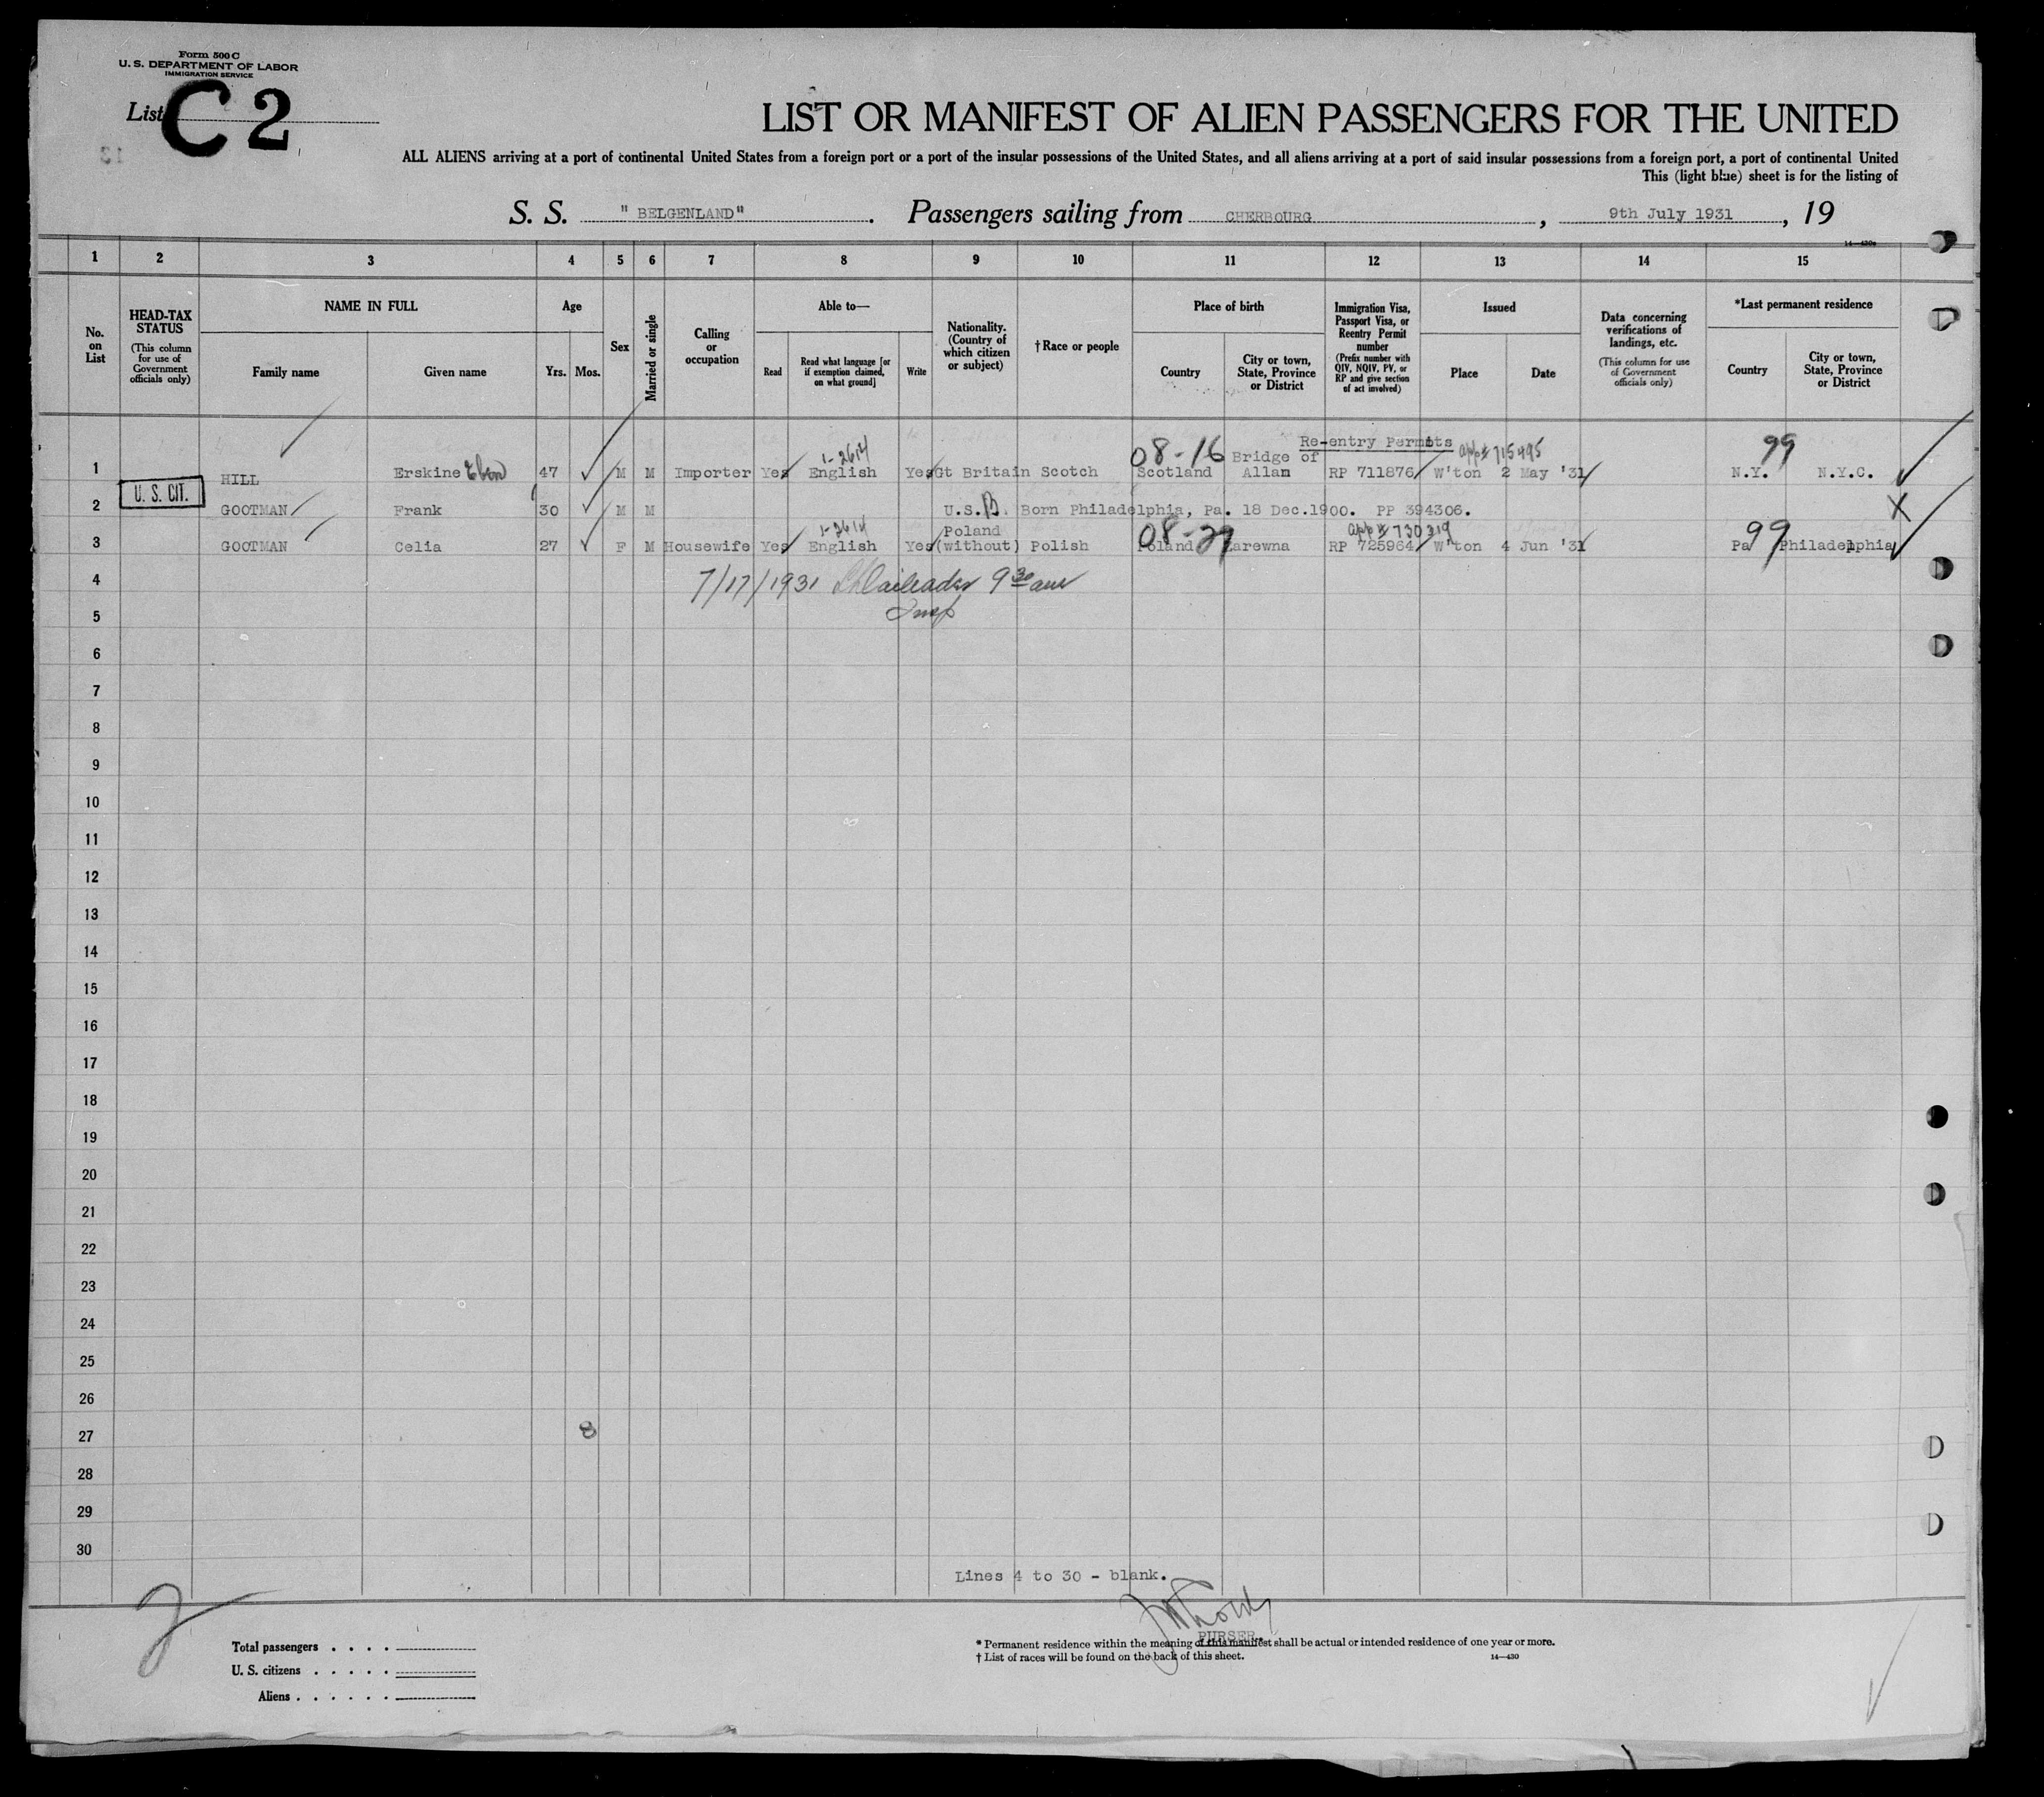 Form 500 C
U. S. DEPARTMENT OF LABOR
IMMIGRATION SERVICE
List C 2
LIST OR MANIFEST OF ALIEN PASSENGERS FOR THE UNITED
ALL ALIENS arriving at a port of continental United States from a foreign port or a port of the insular possessions of the United States, and all aliens arriving at a port of said insular possessions from a foreign port, a port of continental United
This (light blue) sheet is for the listing of
S. S. "BELGENLAND". Passengers sailing from CHERBOURG, 9th July 1931, 19
14—430a
1 2 3 4 5 6 7 8 9 10 11 12 13 14 15
No. on List
HEAD-TAX STATUS
(This column for use of Government officials only)
NAME IN FULL
Family name
Given name
Age
Yrs.
Mos.
Sex
Married or single
Calling or occupation
Able to—
Read
Read what language [or if exemption claimed, on what ground]
Write
Nationality. (Country of which citizen or subject)
†Race or people
Place of birth
Country
City or town, State, Province or District
Immigration Visa, Passport Visa, or Reentry Permit number
(Prefix number with QIV, NQIV, PV, or RP and give section of act involved)
Issued
Place
Date
Data concerning verifications of landings, etc.
(This column for use of Government officials only)
*Last permanent residence
Country
City or town, State, Province or District
1-2614 08-16 Re-entry Permits app# 715495 99
Bridge of
1 HILL Erskine 47 M M Importer Yes English Yes Gt Britain Scotch Scotland Allan RP 711876 W'ton 2 May '31 N.Y. N.Y.C.
U. S. CIT.
2 GOOTMAN Frank 30 M M U.S. Born Philadelphia, Pa. 18 Dec.1900. PP 394306. X
1-2614 Poland 08-29 app# 730319 99
3 GOOTMAN Celia 27 F M Housewife Yes English Yes (without) Polish Poland Larewna RP 725964 W'ton 4 Jun '31 Pa Philadelphia
4 7/17/1931 9 30 am
5 Insp
6
7
8
9
10
11
12
13
14
15
16
17
18
19
20
21
22
23
24
25
26
27 8
28
29
30
Lines 4 to 30 - blank.
PURSER.
Total passengers
U. S. citizens
Aliens
* Permanent residence within the meaning of this manifest shall be actual or intended residence of one year or more.
† List of races will be found on the back of this sheet.
14—430